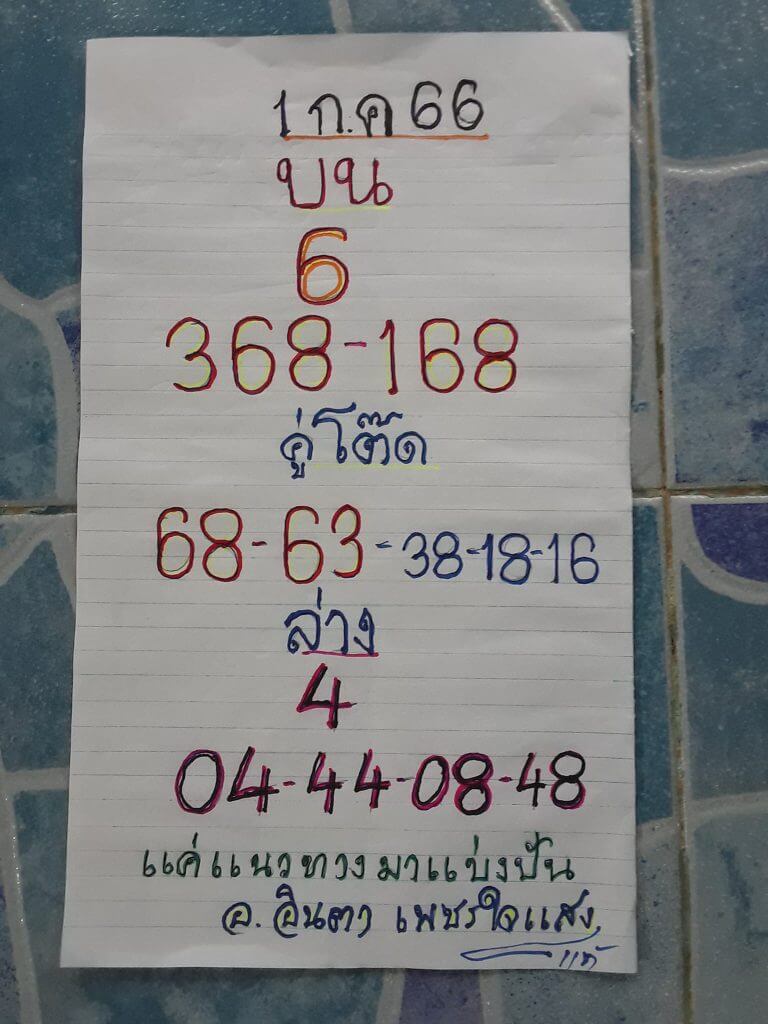 1 ก.ค 66
บน
6
368-168
คู่โต๊ด
68-63-38-18-16
ล่าง
4
04-44-08-48
แค่แนวทางมาแบ่งปัน
อ. อินตา เพชรใจแสง
แท้